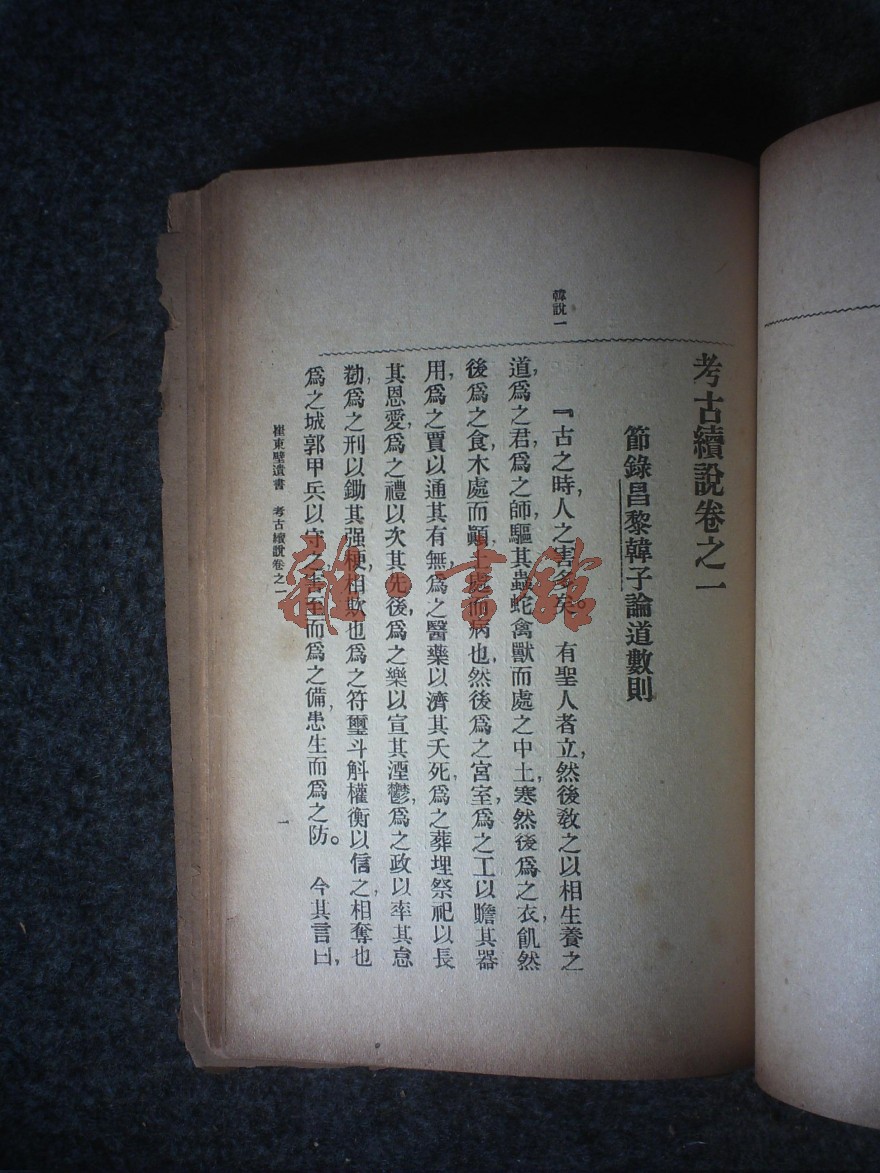 考古續說卷之一
節錄昌黎韓子論道數則
韓說一
『古之時，人之害多矣。有聖人者立，然後教之以相生養之
道，爲之君，爲之師，驅其蟲蛇禽獸而處之中土，寒然後爲之衣，飢然
後爲之食，木處而顚，土處而病也，然後爲之宮室，爲之工以贍其器
用，爲之賈以通其有無，爲之醫藥以濟其夭死，爲之葬埋祭祀以長
其恩愛，爲之禮以次其先後，爲之樂以宣其湮鬱，爲之政以率其怠
勌，爲之刑以鋤其强梗，相欺也爲之符璽斗斛權衡以信之，相奪也
爲之城郭甲兵以守之，害至而爲之備，患生而爲之防。今其言曰，
崔東壁遺書 考古續說卷之一
一
雜·書館